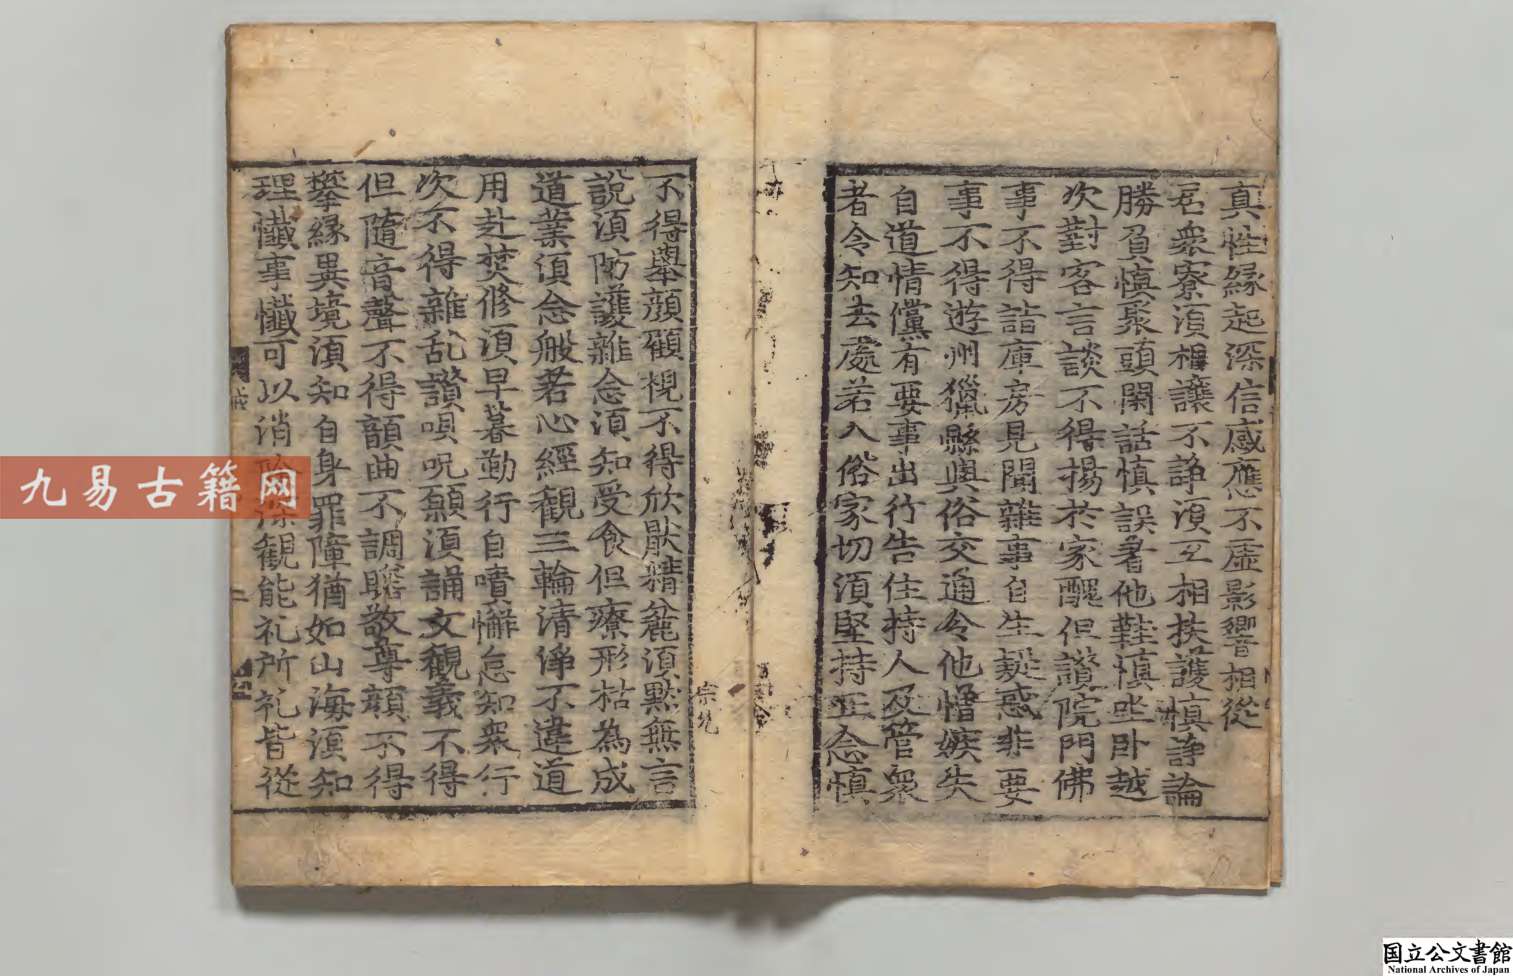 真性緣起深信感應不虛影響相從
居衆寮湏相讓不諍湏互相扶護慎諍論
勝負慎聚頭閑話慎誤著他鞋慎坐卧越
次對客言談不得揚於家醜但讚院門佛
事不得詣庫房見聞雜事自生疑惑非要
事不得遊州獵縣與俗交通令他憎嫉失
自道情儻有要事出行告住持人及管衆
者令知去處若入俗家切湏堅持正念慎
不得舉顔顧視不得欣厭精麁湏黙無言
說湏防護雜念湏知受食但療形枯為成
道業湏念般若心經觀三輪清淨不違道
用赴焚修湏早暮勤行自責懈怠知衆行
次不得雜乱讚唄呪願湏誦文觀義不得
但隨音聲不得韻曲不調瞻敬尊顔不得
攀緣異境湏知自身罪障猶如山海湏知
理懺事懺可以消 深觀能礼所礼皆從
戒
二
宗允
九易古籍网
国立公文書館
National Archives of Japan